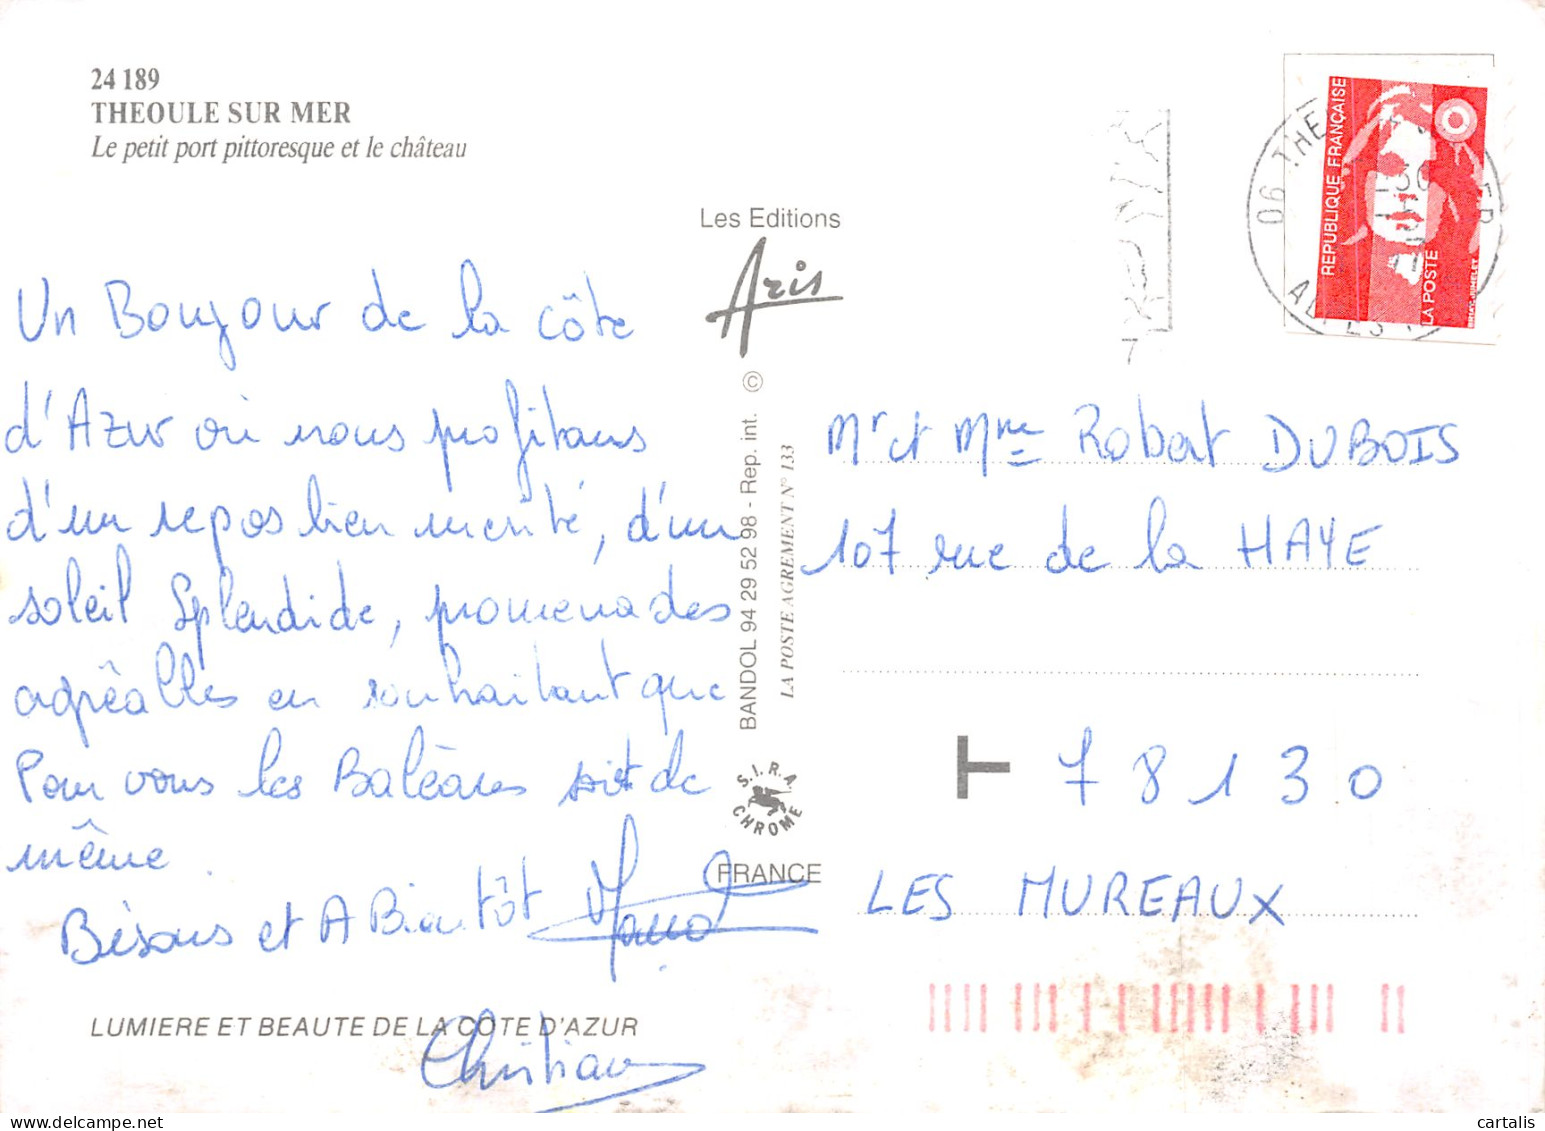 24 189
THEOULE SUR MER
Le petit port pittoresque et le château
Les Editions
Aris
Un Bonjour de la côte
d'Azur où nous profitons
d'un repos bien mérité, d'un
soleil Splendide, promenades
agréables en souhaitant que
Pour vous les Baléares soit de
même.
Bisous et A Bientôt
Christian
LUMIERE ET BEAUTE DE LA COTE D'AZUR
BANDOL 94 29 52 98 - Rep. int. ©
LA POSTE AGREMENT N° 133
S.I.R.A.
CHROME
FRANCE
REPUBLIQUE FRANÇAISE
LA POSTE
06 THE
ER
7
Mr et Mme Robert DUBOIS
107 rue de la HAYE
T 78130
LES MUREAUX
cartalis.com